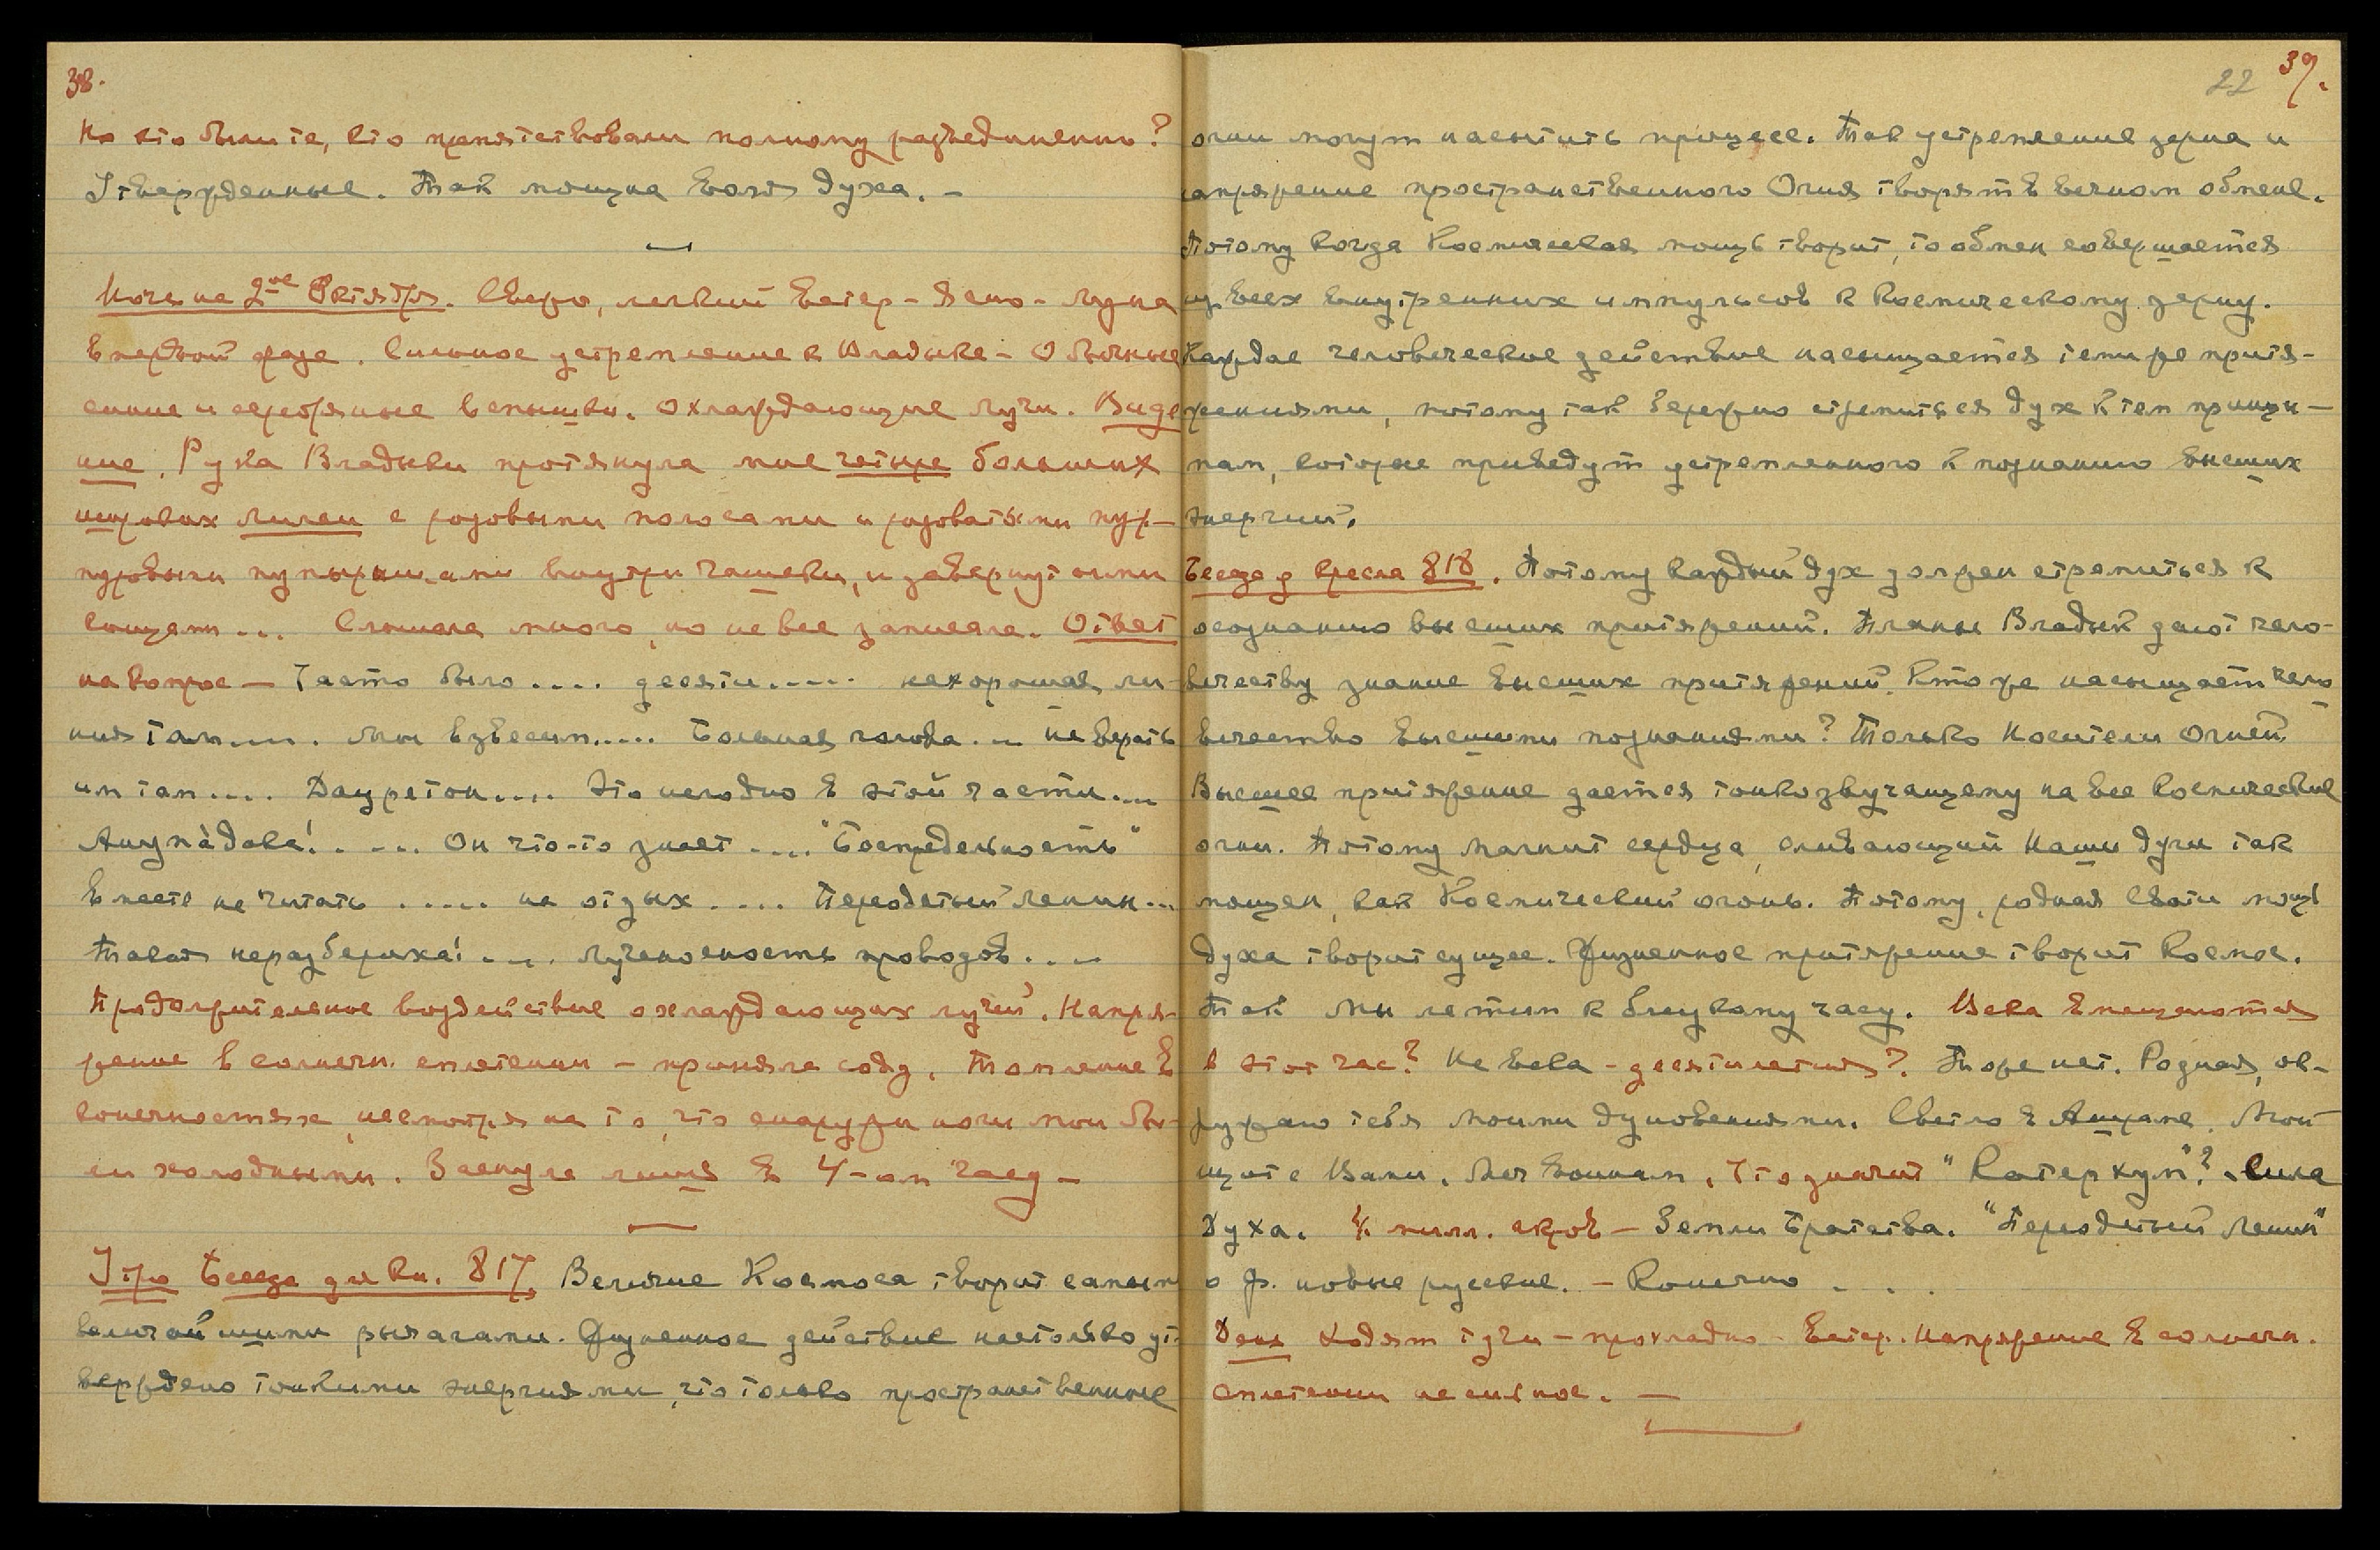 38.
Но кто были те, кто препятствовали полному разъединению?
Утвержденные. Так мощна воля духа. –
Ночь на 2ое Октября. Свежо, легкий ветер – Ясно – луна
в первой фазе. Сильное устремление к Владыке – Обычные
синие и серебряные вспышки. охлаждающие лучи. Виде
ние. Рука Владыки протянула мне четыре больших
махровых лилеи с розовыми полосами и розоватыми пур–
пуровыми пупырышами внутри чашечки, и завернутыми
концами... Слышала много, но не все записала. Ответ
на вопрос – Часто было.... десяти..... нехорошая ли-
ния там.... Мы взвесим..... Большая голова... не верьте
им там.... Даур­етон.... Это негодно в этой части...
Анупàдака!.... Он что-то знает.... "Беспредельность"
вместе не читать ..... на отзых .... Переодетый ленин...
Такая неразбериха! .... лученосность проводов....
Продолжительное воздействие охлаждающих лучей. Напря-
жение в солнечн. сплетении – приняла соду. Томление в
конечностях, несмотря на то, что снаружи ноги мои бы-
ли холодными. Заснула лишь в 4-ом часу –
Утро Беседа для Кн. 817. Величие Космоса творит самыми
величайшими рычагами. Жизненное действие настолько ут-
верждено тонкими энергиями, что только пространственные
22 39.
огни могут насытить процесс. Так устремление зерна и
напряжение пространственного Огня творят в вечном обмене.
Потому когда Космическая мощь творит, то обмен совершается
из всех внутренних импульсов к Космическому зерну.
Каждое человеческое действие насыщается теми же притя-
жениями, потому так бережно стремиться дух к тем принци–
пам, которые приведут устремленного к познанию высших
энергий.
Беседа у кресла 818. Потому каждый дух должен стремиться к
осознанию высших притяжений. Планы Владык дают чело-
вечеству знание высших притяжений. Кто же насыщает чело
вечество высшими познаниями? Только Носители Огней.
Высшее притяжение дается тонкозвучащему на все космические
огни. Потому магнит сердца, сливающий Наши духи так
мощен, как Космический огонь. Потому, родная Свати мощь
духа творит сущее. Жизненное притяжение творит Космос.
Так мы летим к близкому часу. Века вмещаются
в этот час? Не века – десятилетия? Тоже нет. Родная, ок-
ружаю тебя Моими дуновениями. Светло в Ашраме. Мой
щит с Вами. Меч воинам. Что значит "Катеркум"? – Сила
Духа. 4 милл. акров – Земли Братства. "Переодетый Ленин"
о ф. новые русские. – Конечно ....
День Ходят тучи – прохладно – Ветер. Напряжение в солнечн.
сплетении не сильное. –